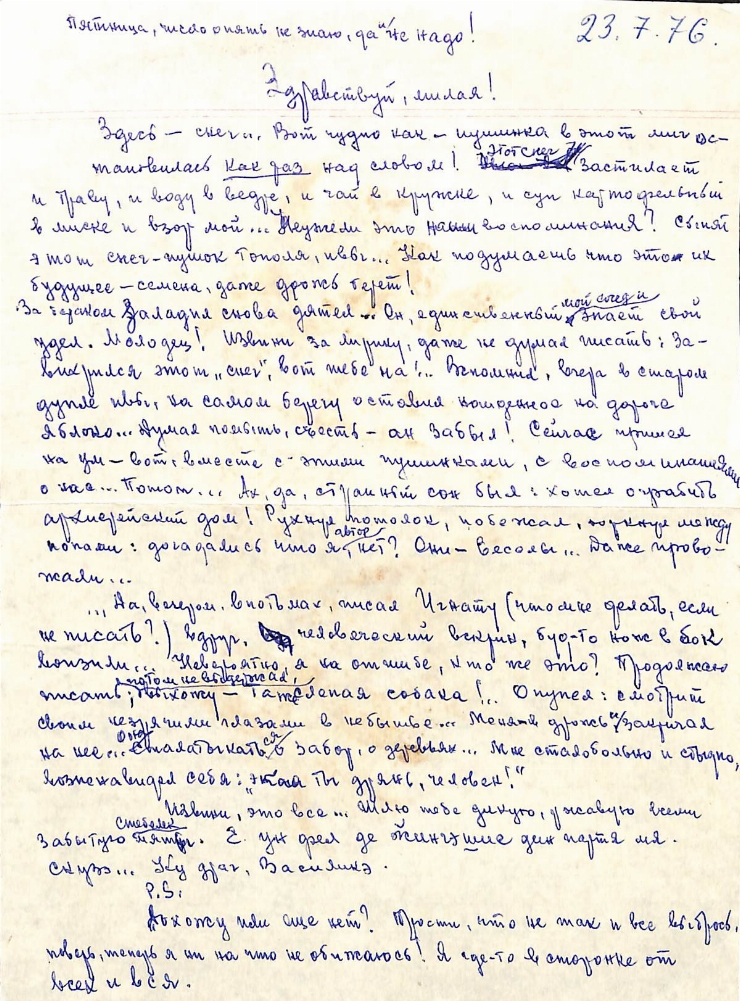 Пятница, число опять не знаю, да и не надо!
23.7.76.
Здравствуй, милая!
Здесь — снег... Вот чудно как — пушинка в этот миг ос-
тановилась как раз над словом! Этот снег застилает
и траву, и воду в ведре, и чай в кружке, и суп картофельный
в миске и взор мой... Неужели это наши воспоминания? Сыпят
этот снег-пушок тополя, ивы... Как подумаешь что это их
будущее — семена, даже дрожь берёт!
За чердаком заладил снова дятел... Он, единственный мой сосед и знает свой
удел. Молодец! Извини за лирику, даже не думал писать: За-
вихрился этот „снег", вот тебе на!.. Вспомнил, вчера в старом
дупле ивы, на самом берегу оставил найденное на дороге
яблоко... Думал помыть, съесть — ан забыл! Сейчас пришел
на ум — вот, вместе с этими пушинками, с воспоминаниями
о нас... Потом... Ах, да, странный сон был: хотел ограбить
архиерейский дом! Рухнул потолок, побежал, юркнул между
попами: догадались что я автор иль нет? Они — веселы... Даже прово-
жали...
... Да, вечером, впотьмах, писал Игнату (что мне делать, если
не писать?) Вдруг, человеческий вскрик, буд-то нож в бок
вонзили... Невероятно, я на отшибе, кто же это? Продолжаю
писать, потом не выдержал, выхожу — та же слепая собака!.. Опупел: смотрит
своими незрячими глазами в небытье... Меня — в дрожь и закричал
на нее... Она стала тыкаться о забор, о деревья... Мне стало больно и стыдно,
возненавидел себя: „Экая ты дрянь, человек!"
Извини, это все... Шлю тебе дикую, ржавую всеми
забытую стебелек мяты. Е ун фел де жингэшие дин партя мя.
Скузэ... Ку драг, Василикэ.
P.S:
Дохожу или еще нет? Прости, что не так и все выбрось,
поверь, теперь я ни на что не обижаюсь! Я где-то в сторонке от
всех и вся.